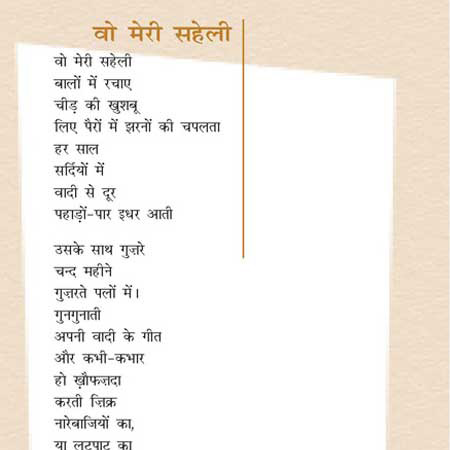 वो मेरी सहेली
वो मेरी सहेली
बालों में रचाए
चीड़ की खुशबू
लिए पैरों में झरनों की चपलता
हर साल
सर्दियों में
वादी से दूर
पहाड़ों-पार इधर आती
उसके साथ गुज़रे
चन्द महीने
गुज़रते पलों में।
गुनगुनाती
अपनी वादी के गीत
और कभी-कभार
हो ख़ौफज़दा
करती ज़िक्र
नारेबाजियों का,
या लूटपाट का